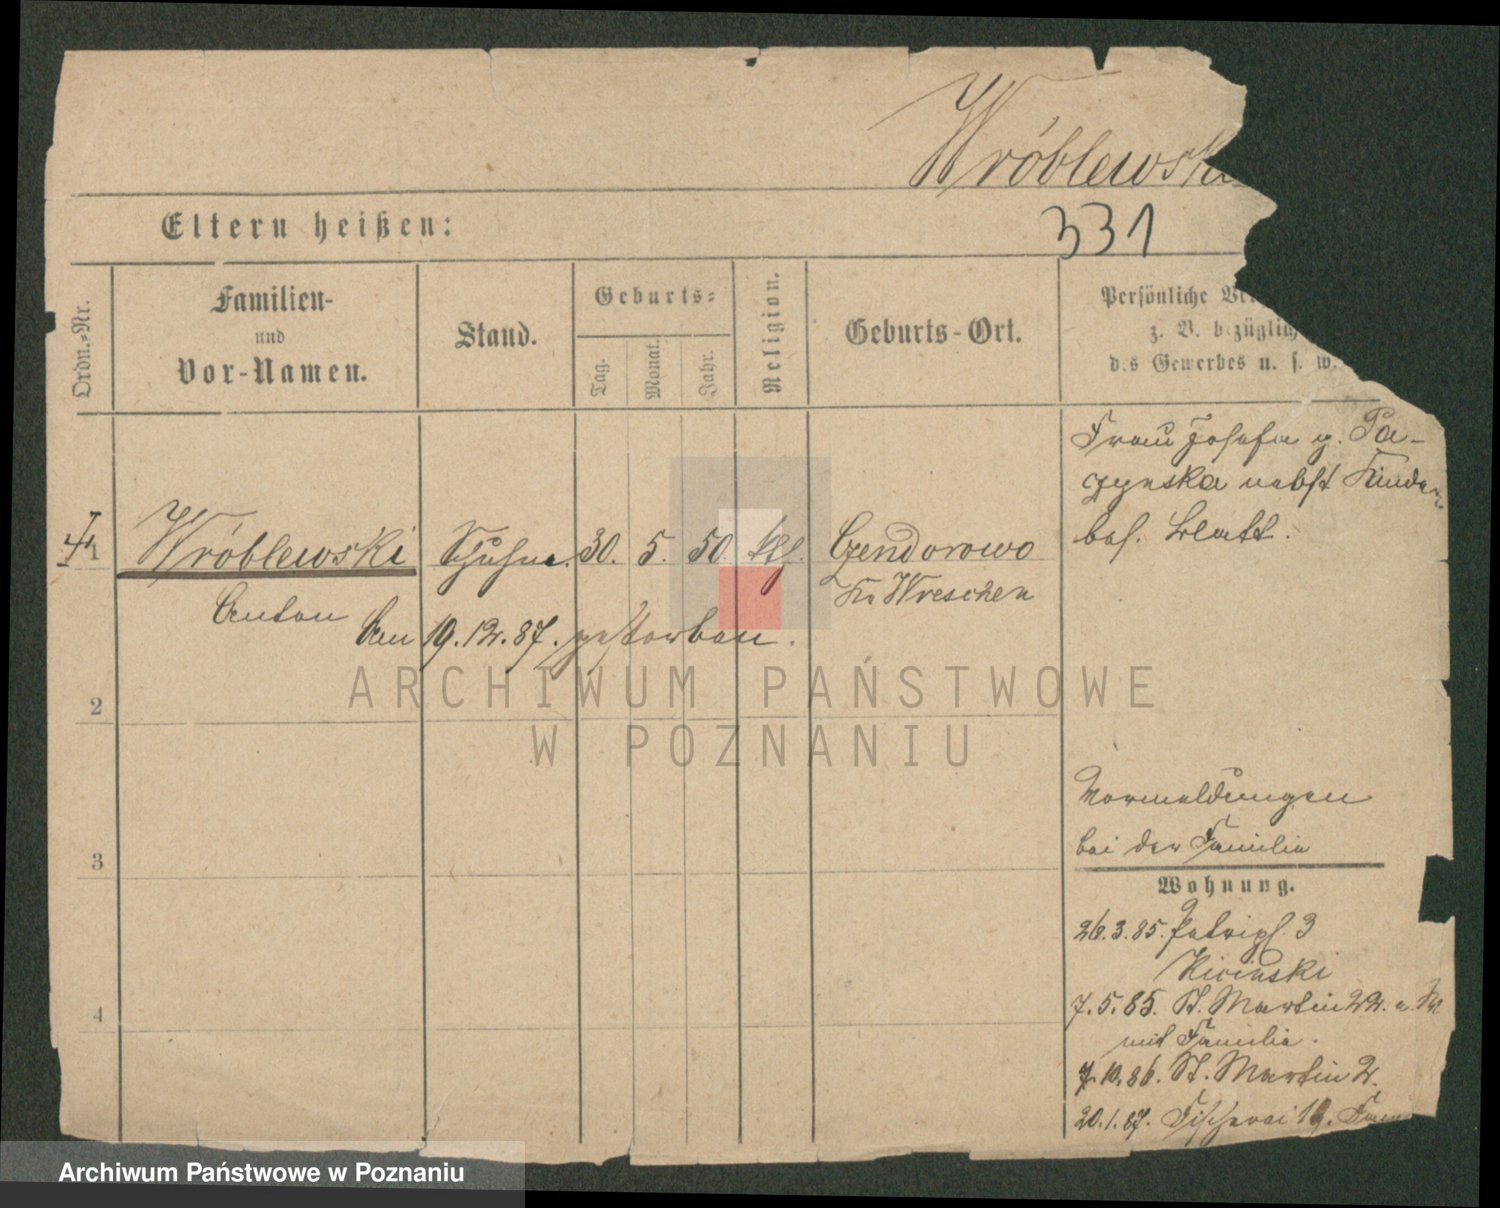 Wróblewski
Eltern heißen:
331
Ordn.-Nr.
Familien-
und
Vor-Namen.
Stand.
Geburts-
Tag.
Monat.
Jahr.
Religion.
Geburts-Ort.
Persönliche
z. B. bezüglich
des Gewerbes u. s. w.
Frau Josefa g. Pa-
czynska nebst Kinder
bes. Blatt.
1
Wróblewski
Schuhm. 30. 5. 50. kth.
Czendorowo
Kr. Wreschen
Anton
Am 19.12.87. gestorben.
2
3
4
Vormeldungen
bei der Familie
Wohnung.
26.3.85. Petripl. 3
Kicinski
7.5.85. St. Martin 22.
mit Familie.
7.10.86. St. Martin 2.
20.1.87. Fischerei 19. Fami
ARCHIWUM PAŃSTWOWE
W POZNANIU
Archiwum Państwowe w Poznaniu